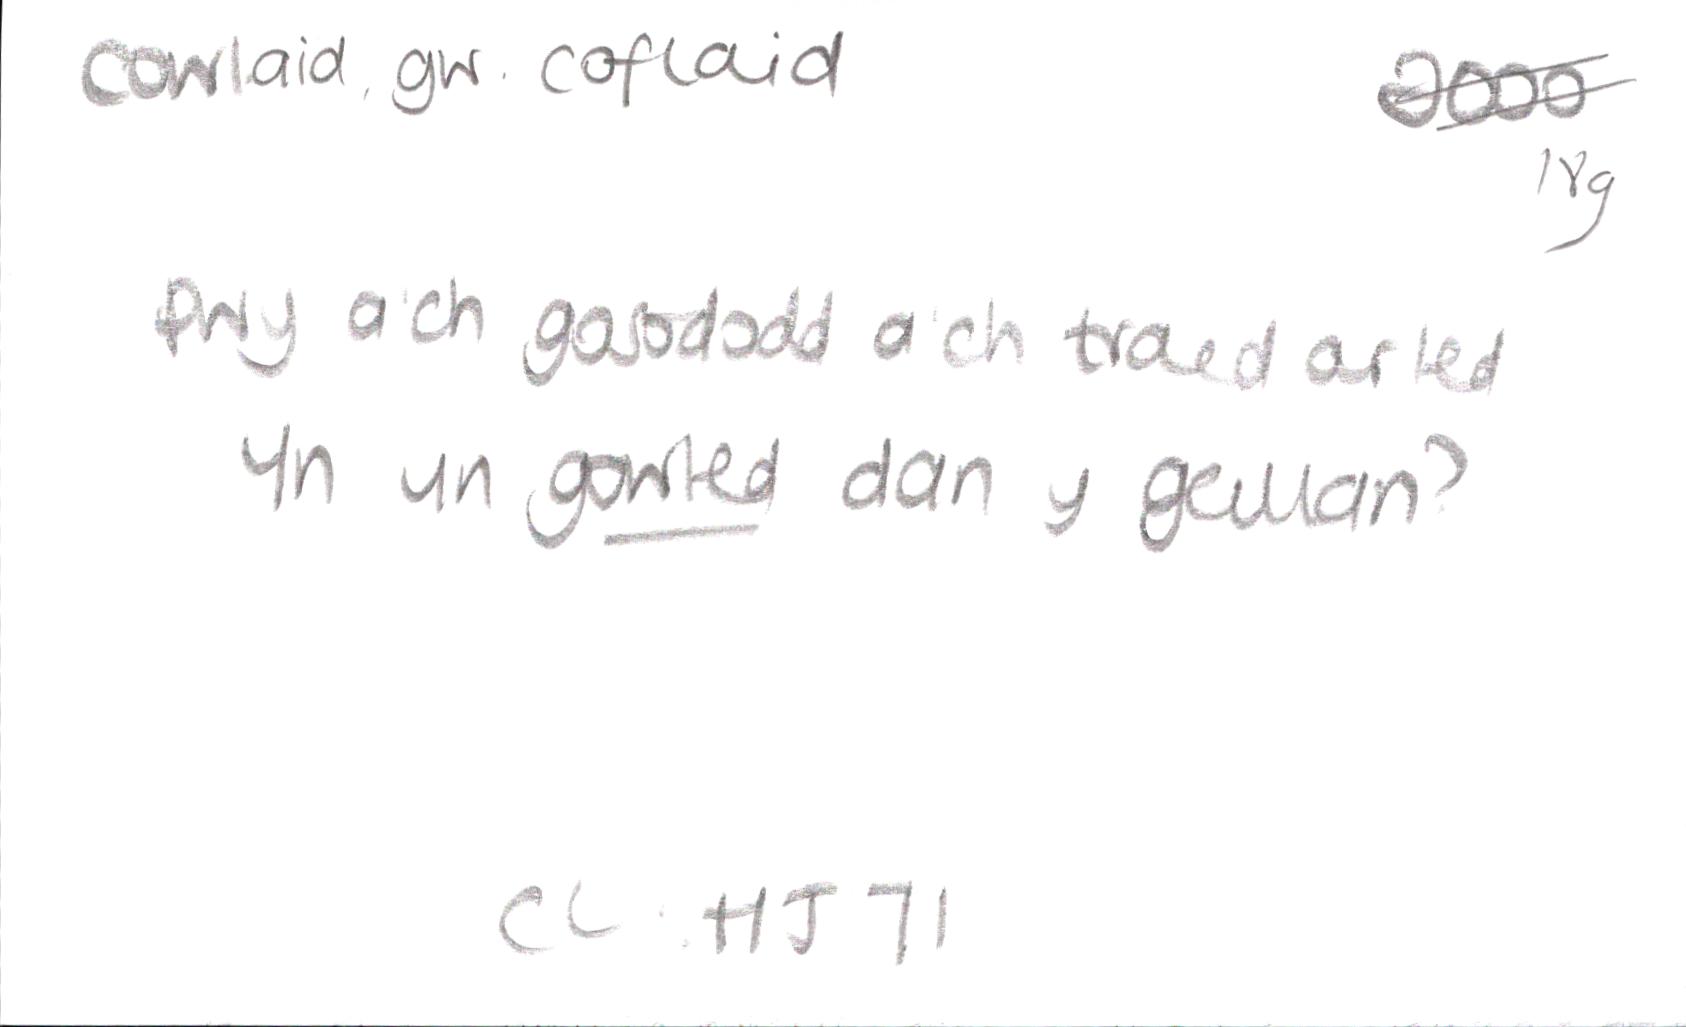 cowlaid, gw. coflaid
2000
18g
Pwy a'ch gosododd a'ch traed ar led
Yn un gowled dan y geullan?
CL: HJ 71